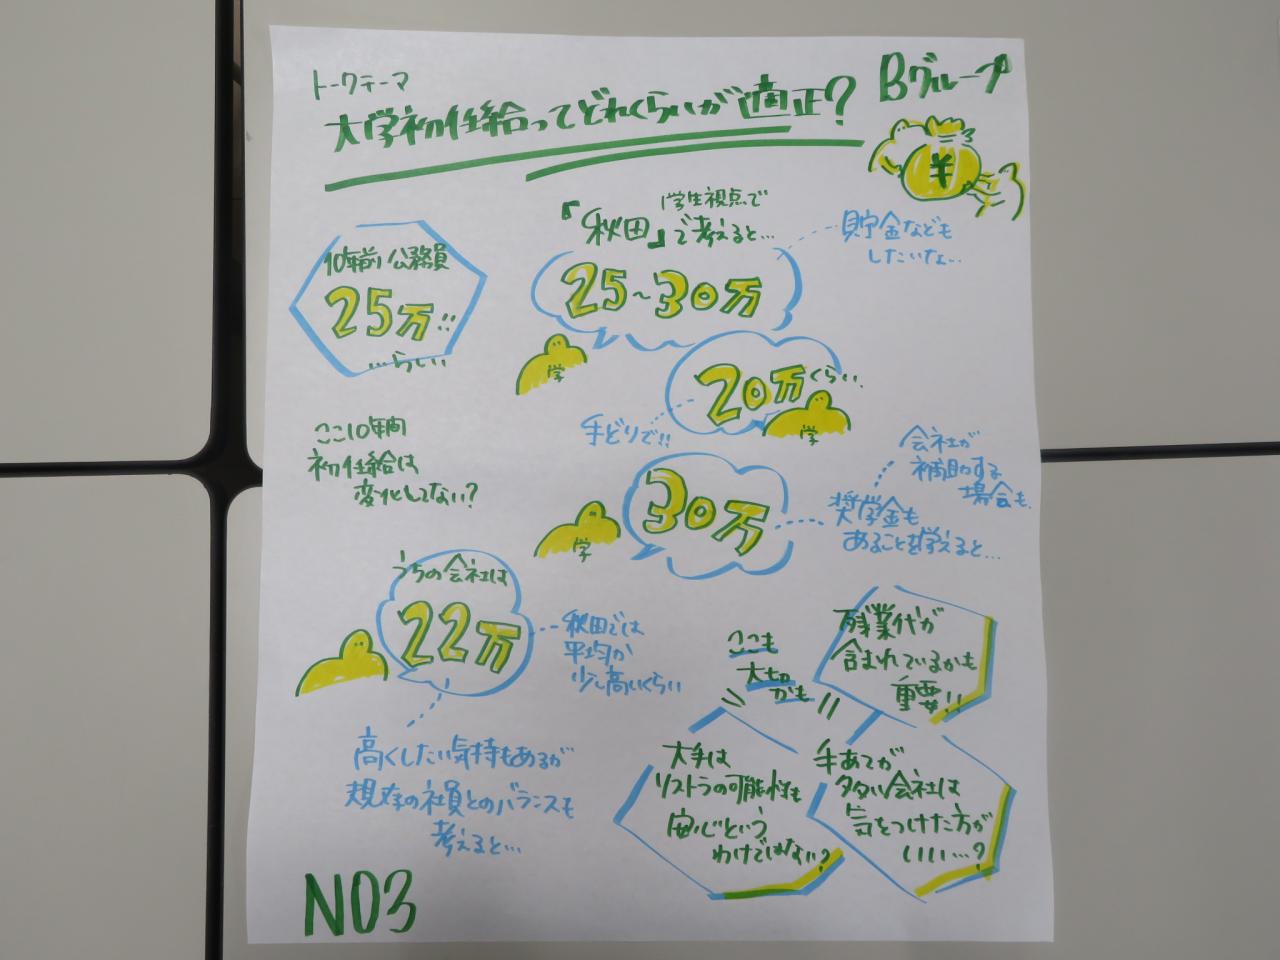 トークテーマ
大学初任給ってどれくらいが適正?
Bグループ
¥
10年前公務員
25万!!
…らしい
学生視点で
『秋田』で考えると…
25~30万
学
貯金なども
したいな…
20万くらい
学
手どりで!!
ここ10年間
初任給は
変化してない?
30万
学
奨学金も
あることを考えると…
会社が
補助する
場合も
うちの会社は
22万
秋田では
平均か
少し高いくらい
高くしたい気持もあるが
現存の社員とのバランスも
考えると…
ここも
大切
かも
残業代が
含まれているかも
重要!!
大手は
リストラの可能性も
安心という
わけではない?
手あてが
多い会社は
気をつけた方が
いい…?
NO3